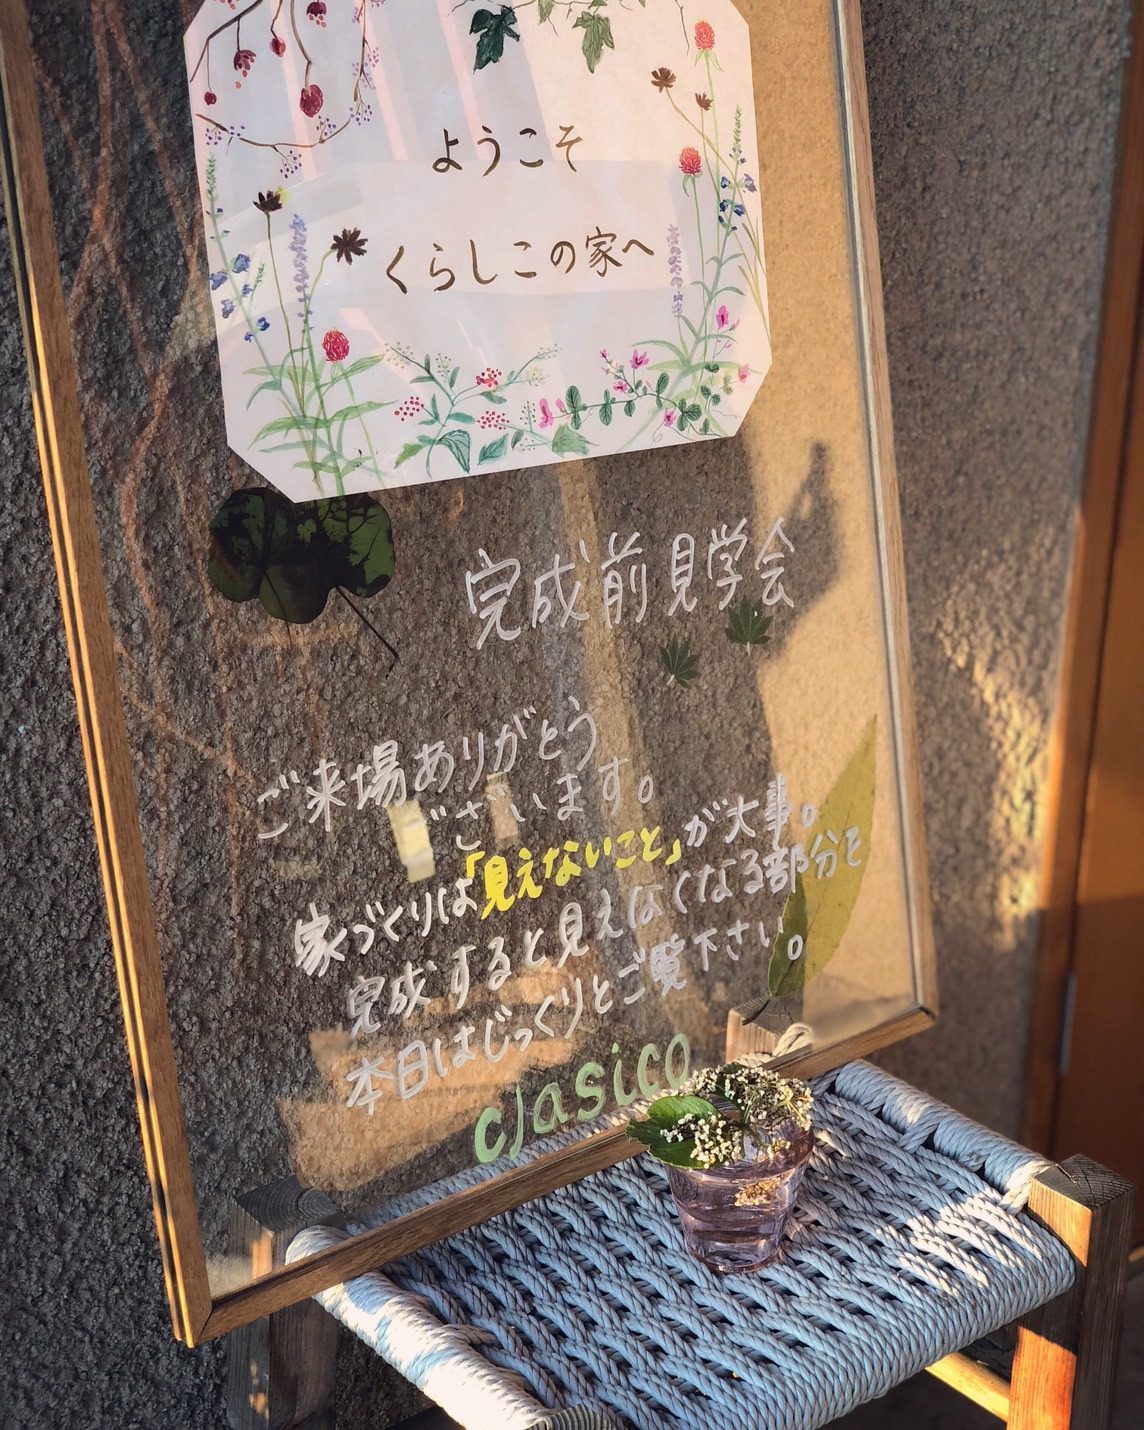 ようこそ
くらしこの家へ
完成前見学会
ご来場ありがとう
ございます。
家づくりは「見えないこと」が大事。
完成すると見えなくなる部分を
本日はじっくりとご覧下さい。
clasico